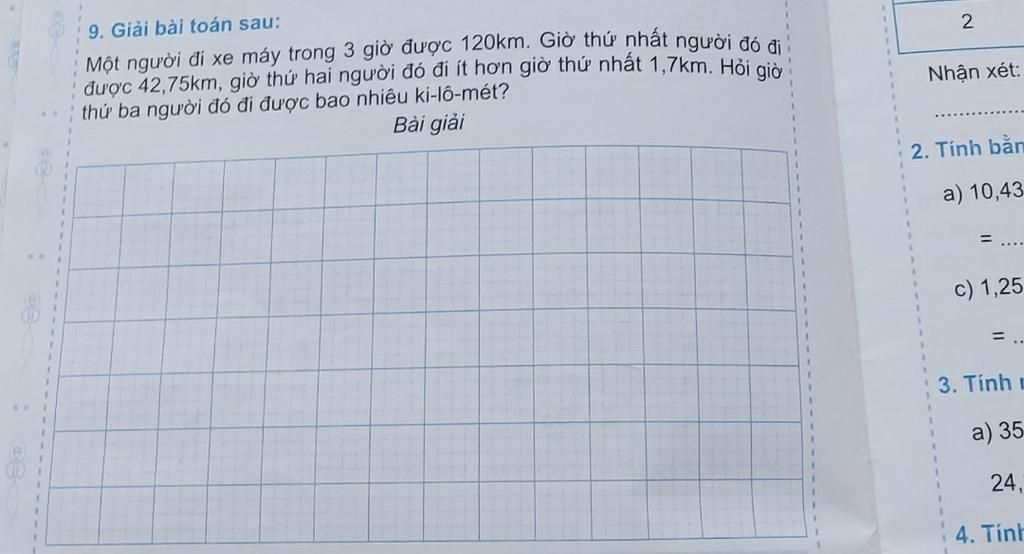 9. Giải bài toán sau:
Một người đi xe máy trong 3 giờ được 120km. Giờ thứ nhất người đó đi
được 42,75km, giờ thứ hai người đó đi ít hơn giờ thứ nhất 1,7km. Hỏi giờ
thứ ba người đó đi được bao nhiêu ki-lô-mét?
Bài giải
2
Nhận xét:
2. Tính
a) 10,43
= ....
c) 1,25
= ..
3. Tính
a) 35
24,
4. Tính